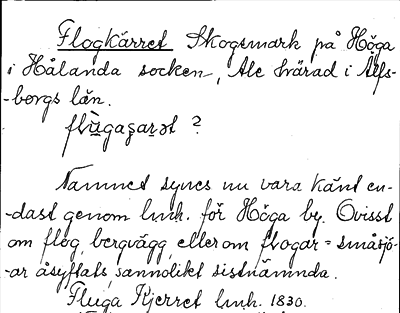 Flogkärret Skogsmark på Höga
i Hålanda socken, Ale härad i Älfs-
-borgs län.
flùgaʂaʀət ?
Namnet synes nu vara känt en-
-dast genom lmh. för Höga by. Ovisst
om flog, bergvägg, eller om flogar = småsjö-
ar åsyftats, sannolikt sistnämnda.
Fluga Kjerret lmh. 1830.